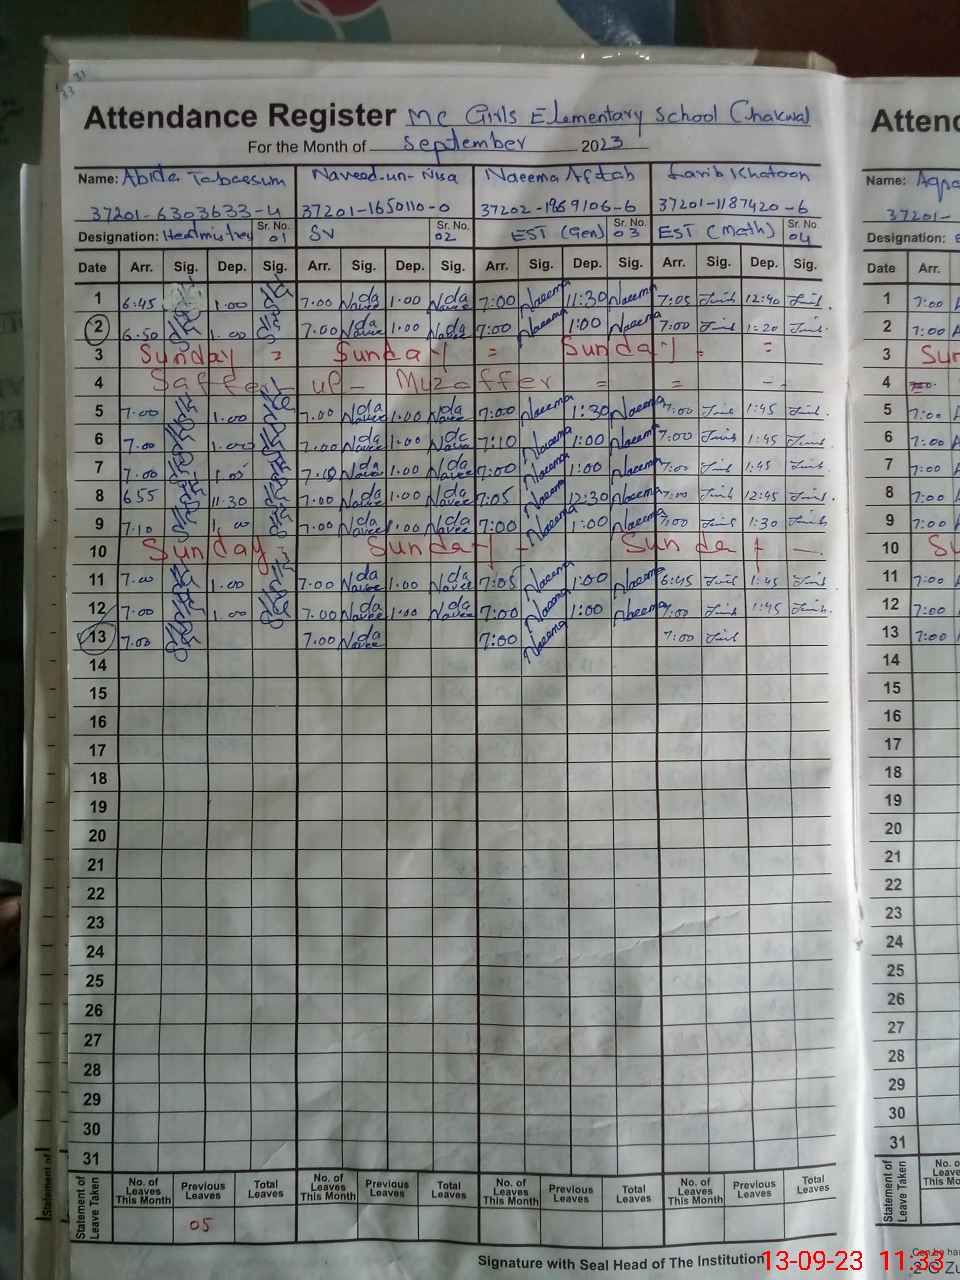 Attendance Register MC Girls Elementary School Chakwal
For the Month of September 2023
Name: Abida Tabassum Naveed-un-Nisa Naeema Aftab
37201-6303633-4 37201-1650110-0 37202-1969106-6 37201-1187420-6
Designation: Sr. No. 01 SV Sr. No. 02 EST (Gen) Sr. No. 03 EST (Math) Sr. No. 04
Date Arr. Sig. Dep. Sig. Arr. Sig. Dep. Sig. Arr. Sig. Dep. Sig. Arr. Sig. Dep. Sig.
1 6.45 1.00 7.00 Naveeda 1.00 Naveeda 7:00 Naeema 11:30 Naeema 7:05 12:40
2 6.50 1.00 7.00 Naveeda 1.00 Naveeda 7:00 Naeema 1:00 Naeema 7:00 1:20
3 Sunday = Sunday = Sunday - =
4 Saffer up - Muzaffer = = -
5 7.00 1.00 7.00 Naveeda 1.00 Naveeda 7:00 Naeema 1:30 Naeema 7:00 1:45
6 7.00 1.00 7.00 Naveeda 1.00 Naveeda 7:10 Naeema 1:00 Naeema 7:00 1:45
7 7.00 7.10 Naveeda 1.00 Naveeda 7:00 Naeema 1:00 Naeema 7:00 1:45
8 655 11.30 7.00 Naveeda 1.00 Naveeda 7:05 Naeema 12:30 Naeema 7:00 12:45
9 7.10 1.00 7.00 Naveeda 1.00 Naveeda 7:00 Naeema 1:00 Naeema 7:00 1:30
10 Sunday - Sunday - Sunday -
11 7.00 1.00 7.00 Naveeda 1.00 Naveeda 7:05 Naeema 1:00 Naeema 6:45 1:45
12 7.00 1.00 7.00 Naveeda 1.00 Naveeda 7:00 Naeema 1:00 Naeema 7:00 1:45
13 7.00 7.00 Naveeda 7:00 Naeema 7:00
14
15
16
17
18
19
20
21
22
23
24
25
26
27
28
29
30
31
Statement of Leave Taken
No. of Leaves This Month Previous Leaves Total Leaves No. of Leaves This Month Previous Leaves Total Leaves No. of Leaves This Month Previous Leaves Total Leaves No. of Leaves This Month Previous Leaves Total Leaves
05
Signature with Seal Head of The Institution
Attend
Name:
37201-
Designation:
Date Arr.
1 7:00
2 7:00
3 Sun
4
5 7:00
6 7:00
7 7:00
8 7:00
9 7:00
10 Su
11 7:00
12 7:00
13 7:00
14
15
16
17
18
19
20
21
22
23
24
25
26
27
28
29
30
31
Statement of Leave Taken
13-09-23 11:33